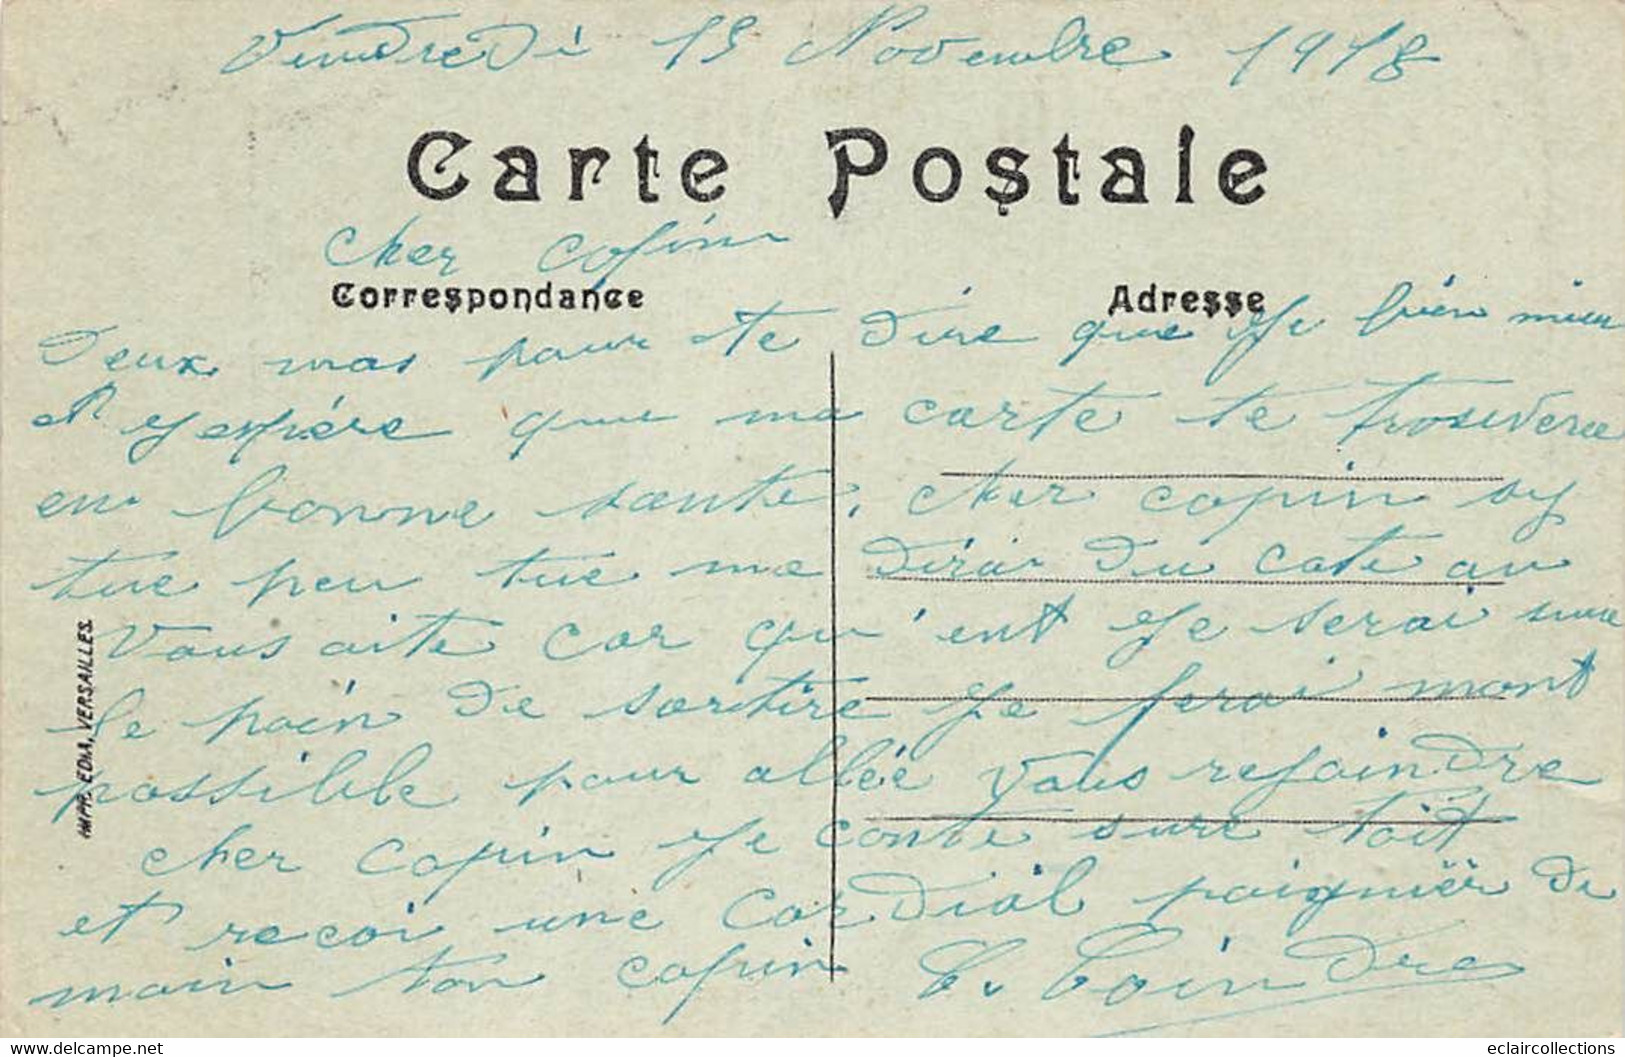 Vendredi 15 Novembre 1918
Carte Postale
Cher copin
Correspondance
Adresse
Deux mos pour te dire que je bien
et jespére que ma carte te trouvera
en bonne sante, cher copin sy
tue peu tue me dirai du cote au
vous aite car qu'ent je serai
le poin de sortire je ferai mont
possible pour allée vous rejoindre
cher copin je conte sure toit
et recoi une cordial poignier de
main ton copin
IMPR. EDIA, VERSAILLES.
https://www.delcampe.net/en_GB/collections/
eclaircollections